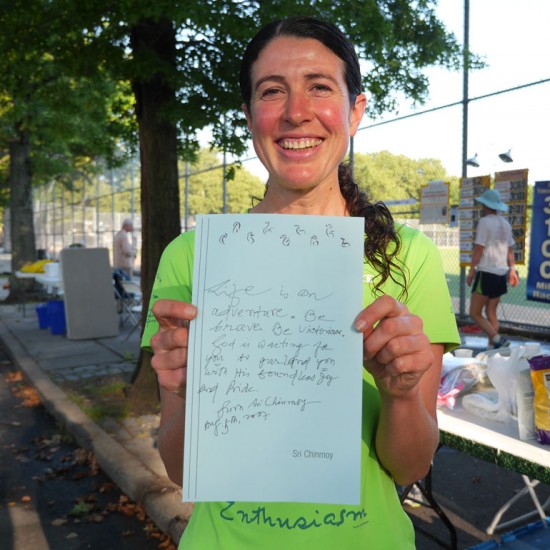 Life is an
adventure. Be
brave. Be victorious.
God is waiting for
you to garland you
with His boundless Joy
and Pride.
from Sri Chinmoy
Aug 5th, 2007
Sri Chinmoy
Enthusiasm